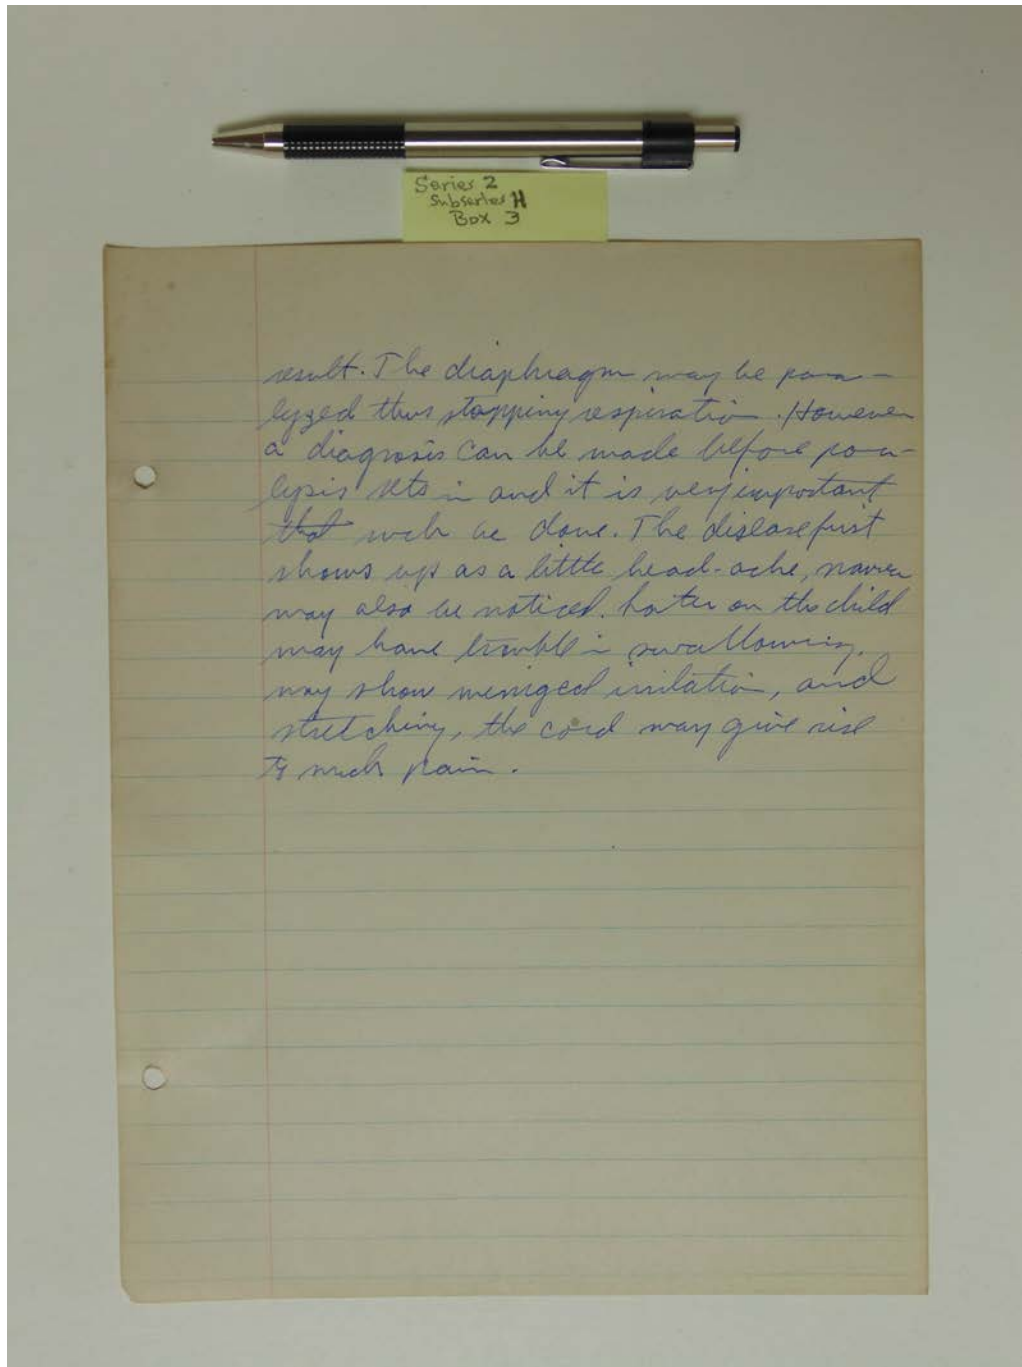 Series 2
Subseries H
Box 3
result. The diaphragm may be para-
lyzed thus stopping respiration. However
a diagnosis can be made before para-
lysis sets in and it is very important
that such be done. The disease first
shows up as a little head-ache,
may also be noticed. Later on the child
may have trouble in swallowing,
may show irritation, and
stretching, the cord may give rise
to much pain.